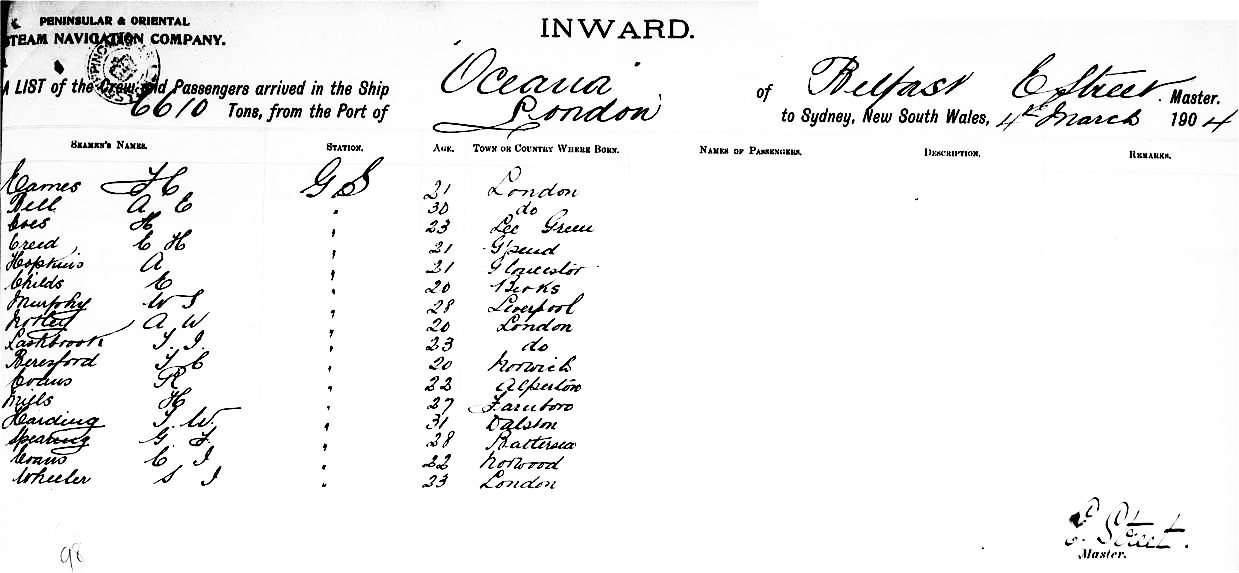 PENINSULAR & ORIENTAL
STEAM NAVIGATION COMPANY.
INWARD.
A LIST of the Crew and Passengers arrived in the Ship Oceana of Belfast E Street Master.
6610 Tons, from the Port of London to Sydney, New South Wales, 4th March 1904
SEAMEN'S NAMES. STATION. AGE. TOWN OR COUNTRY WHERE BORN. NAMES OF PASSENGERS. DESCRIPTION. REMARKS.
Eames H C G S 21 London
Bell A E " 30 do
Coes H " 23 Lee Green
Creed C H " 21 G'send
Hopkins A " 21 Gloucester
Childs E " 20 Berks
Murphy W S " 28 Liverpool
Notley A W " 20 London
Lashbrook T J " 23 do
Beresford T C " 20 Norwich
Evans R " 22 Alperton
Mills H " 27 Farnboro
Harding T W " 31 Dalston
Spearing G F " 28 Battersea
Evans E J " 22 Norwood
Wheeler S J " 23 London
E. Street.
Master.
98